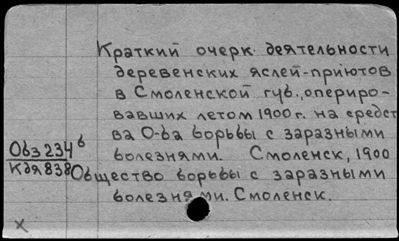 Краткий очерк деятельности
деревенских яслей-приютов
в Смоленской губ., опериро-
вавших летом 1900 г. на средст
ва О-ва борьбы с заразными
болезнями. Смоленск, 1900
Обз 234 б
Кдя 838
Общество борьбы с заразными
болезнями. Смоленск.
x